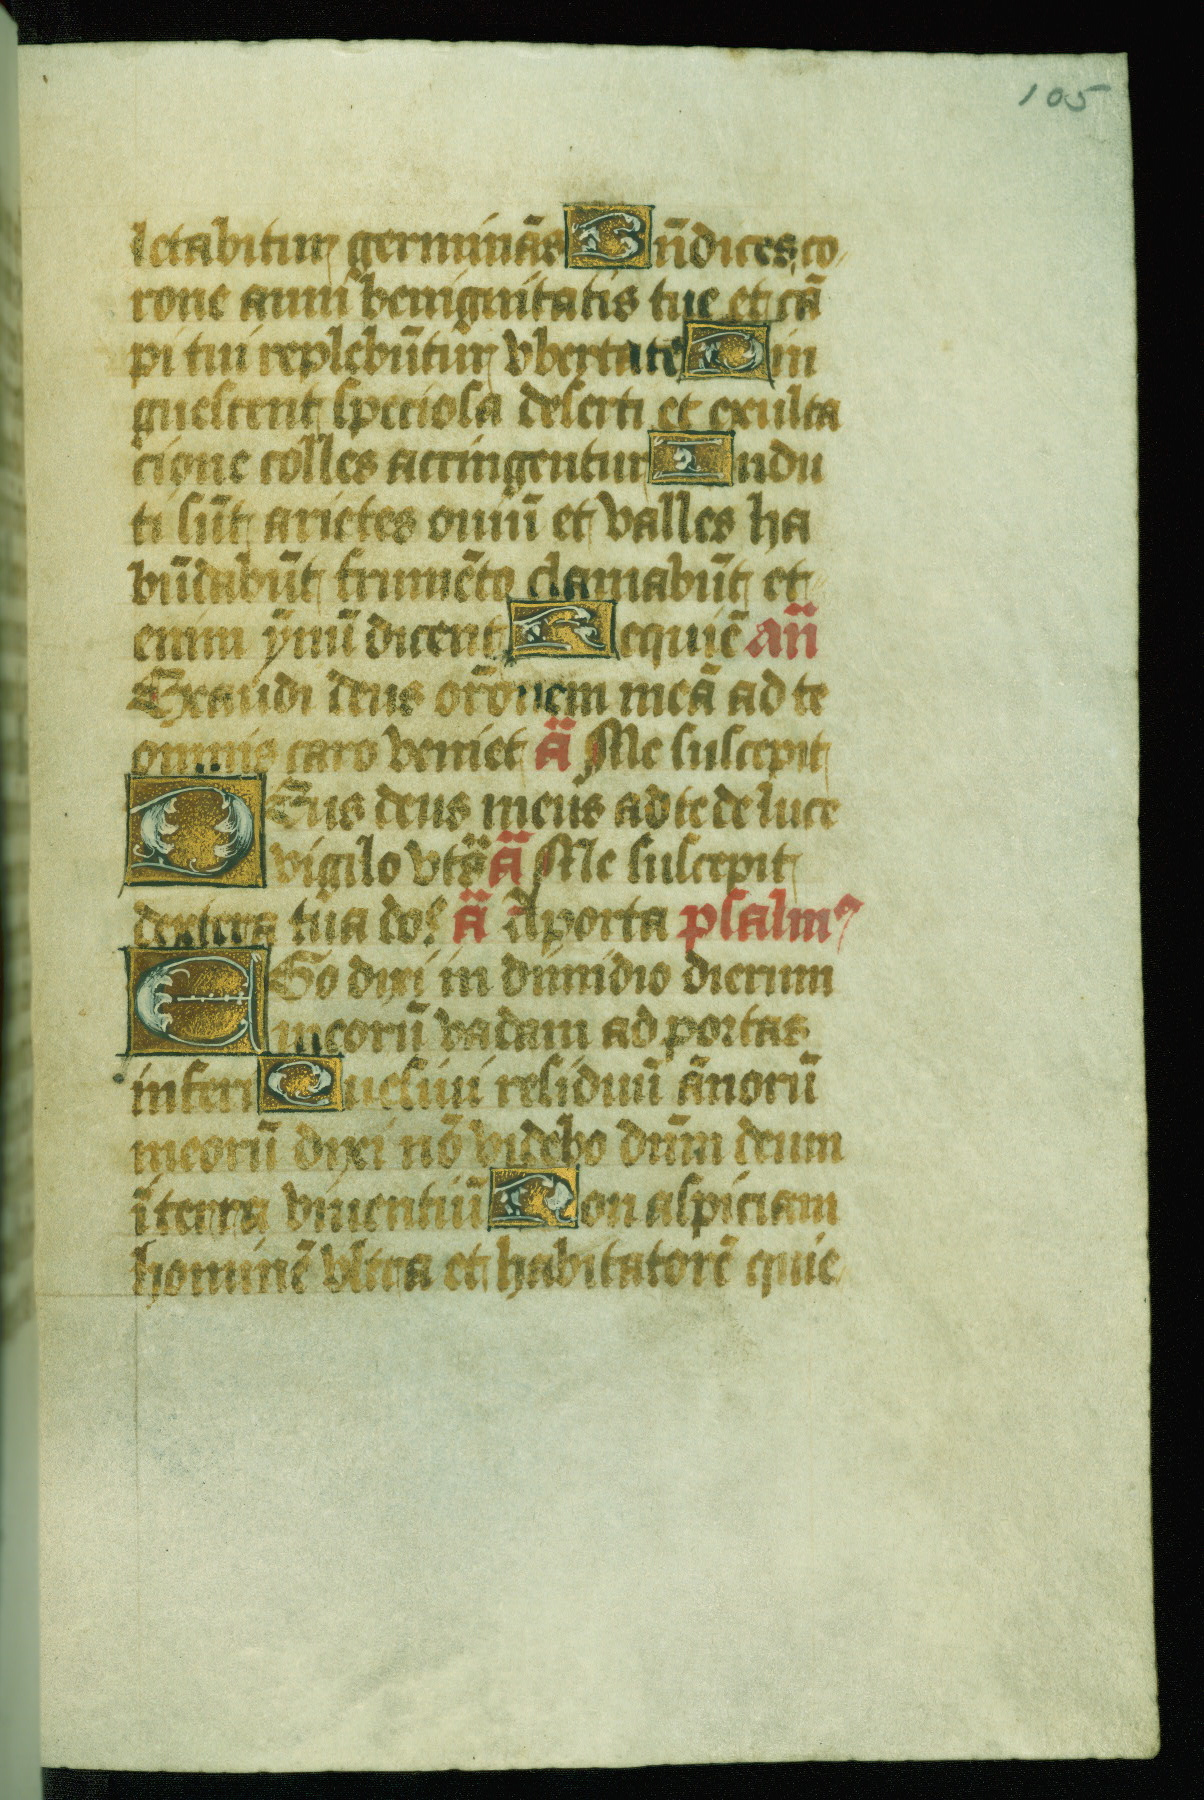 105
letabitur germinãs Bñdices co
rone anni benignitatis tue et cã
pi tui replebũtur vbertate Pin
guescent speciosa deserti et exulta
cione colles accingentur Indu
ti sũt arietes ouiũ et valles ha
bũdabũt frumẽto clamabũt et
enim ymnũ dicent Requiẽ añ
Exaudi deus orõnem meã ad te
omnis caro veniet ã Me suscepit
DEus deus meus ad te de luce
vigilo vtš ã Me suscepit
dextera tua dos ã A porta psalmꝰ
EGo dixi in dimidio dierum
meorũ vadam ad portas
inferi Quesiui residuũ ãnorũ
meorũ dixi nõ videbo dñm deum
ĩ terra viuentiũ Non aspiciam
hominẽ vltra et habitatorẽ quie